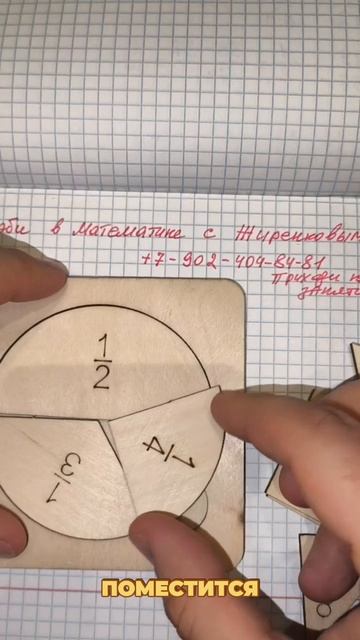 в математике с Жиренковым
+7-902-404-84-81
Приходи на
занятия
1/2
1/3
1/4
ПОМЕСТИТСЯ